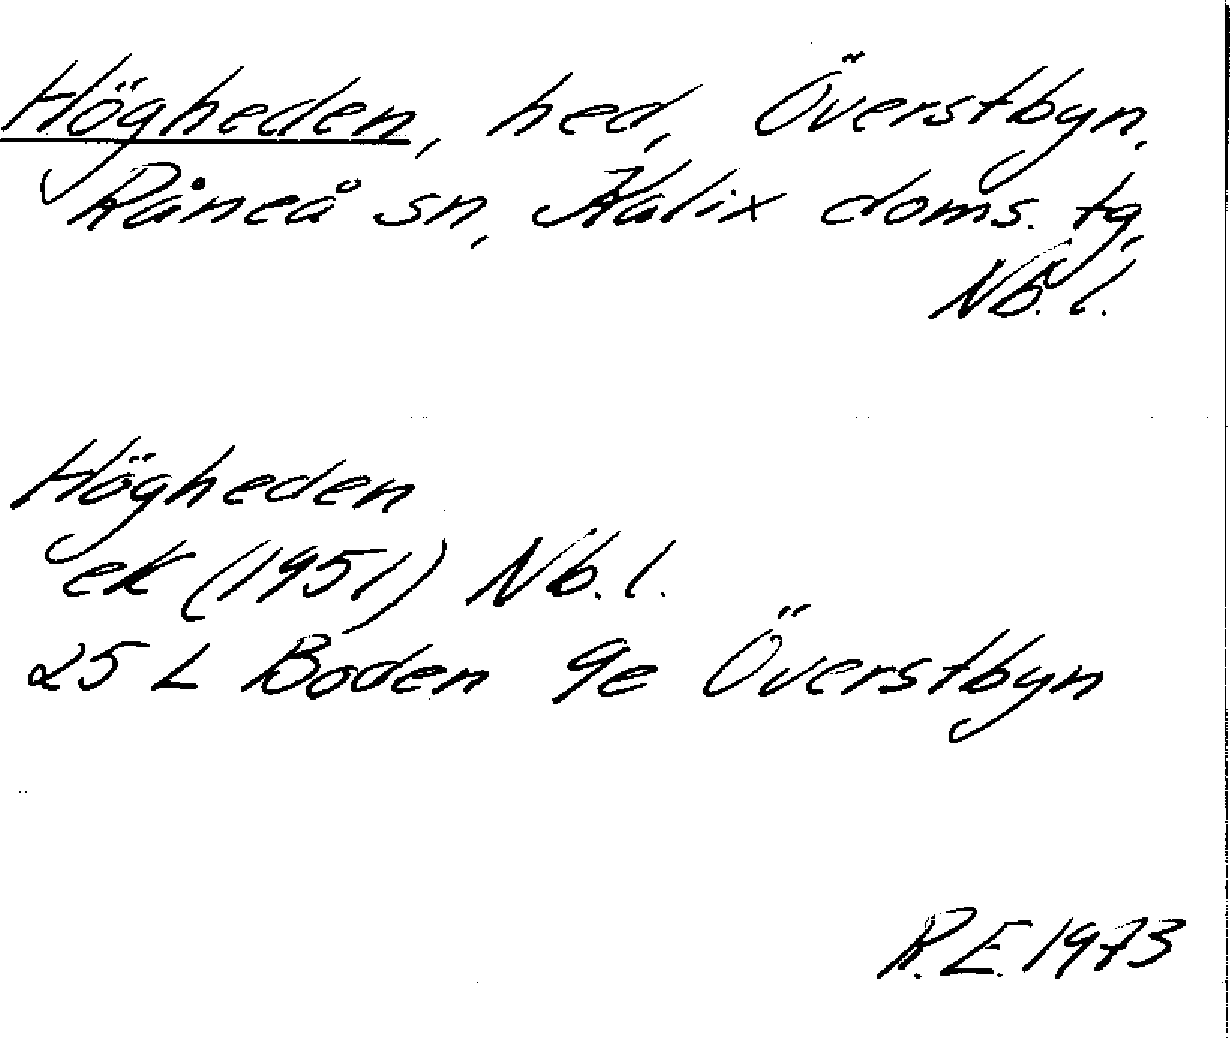 Högheden, hed, Överstbyn,
Råneå sn, Kalix doms. tg,
Nb. l.
Högheden
ek (1951) Nb. l.
25 L Boden 9e Överstbyn
R.E. 1973